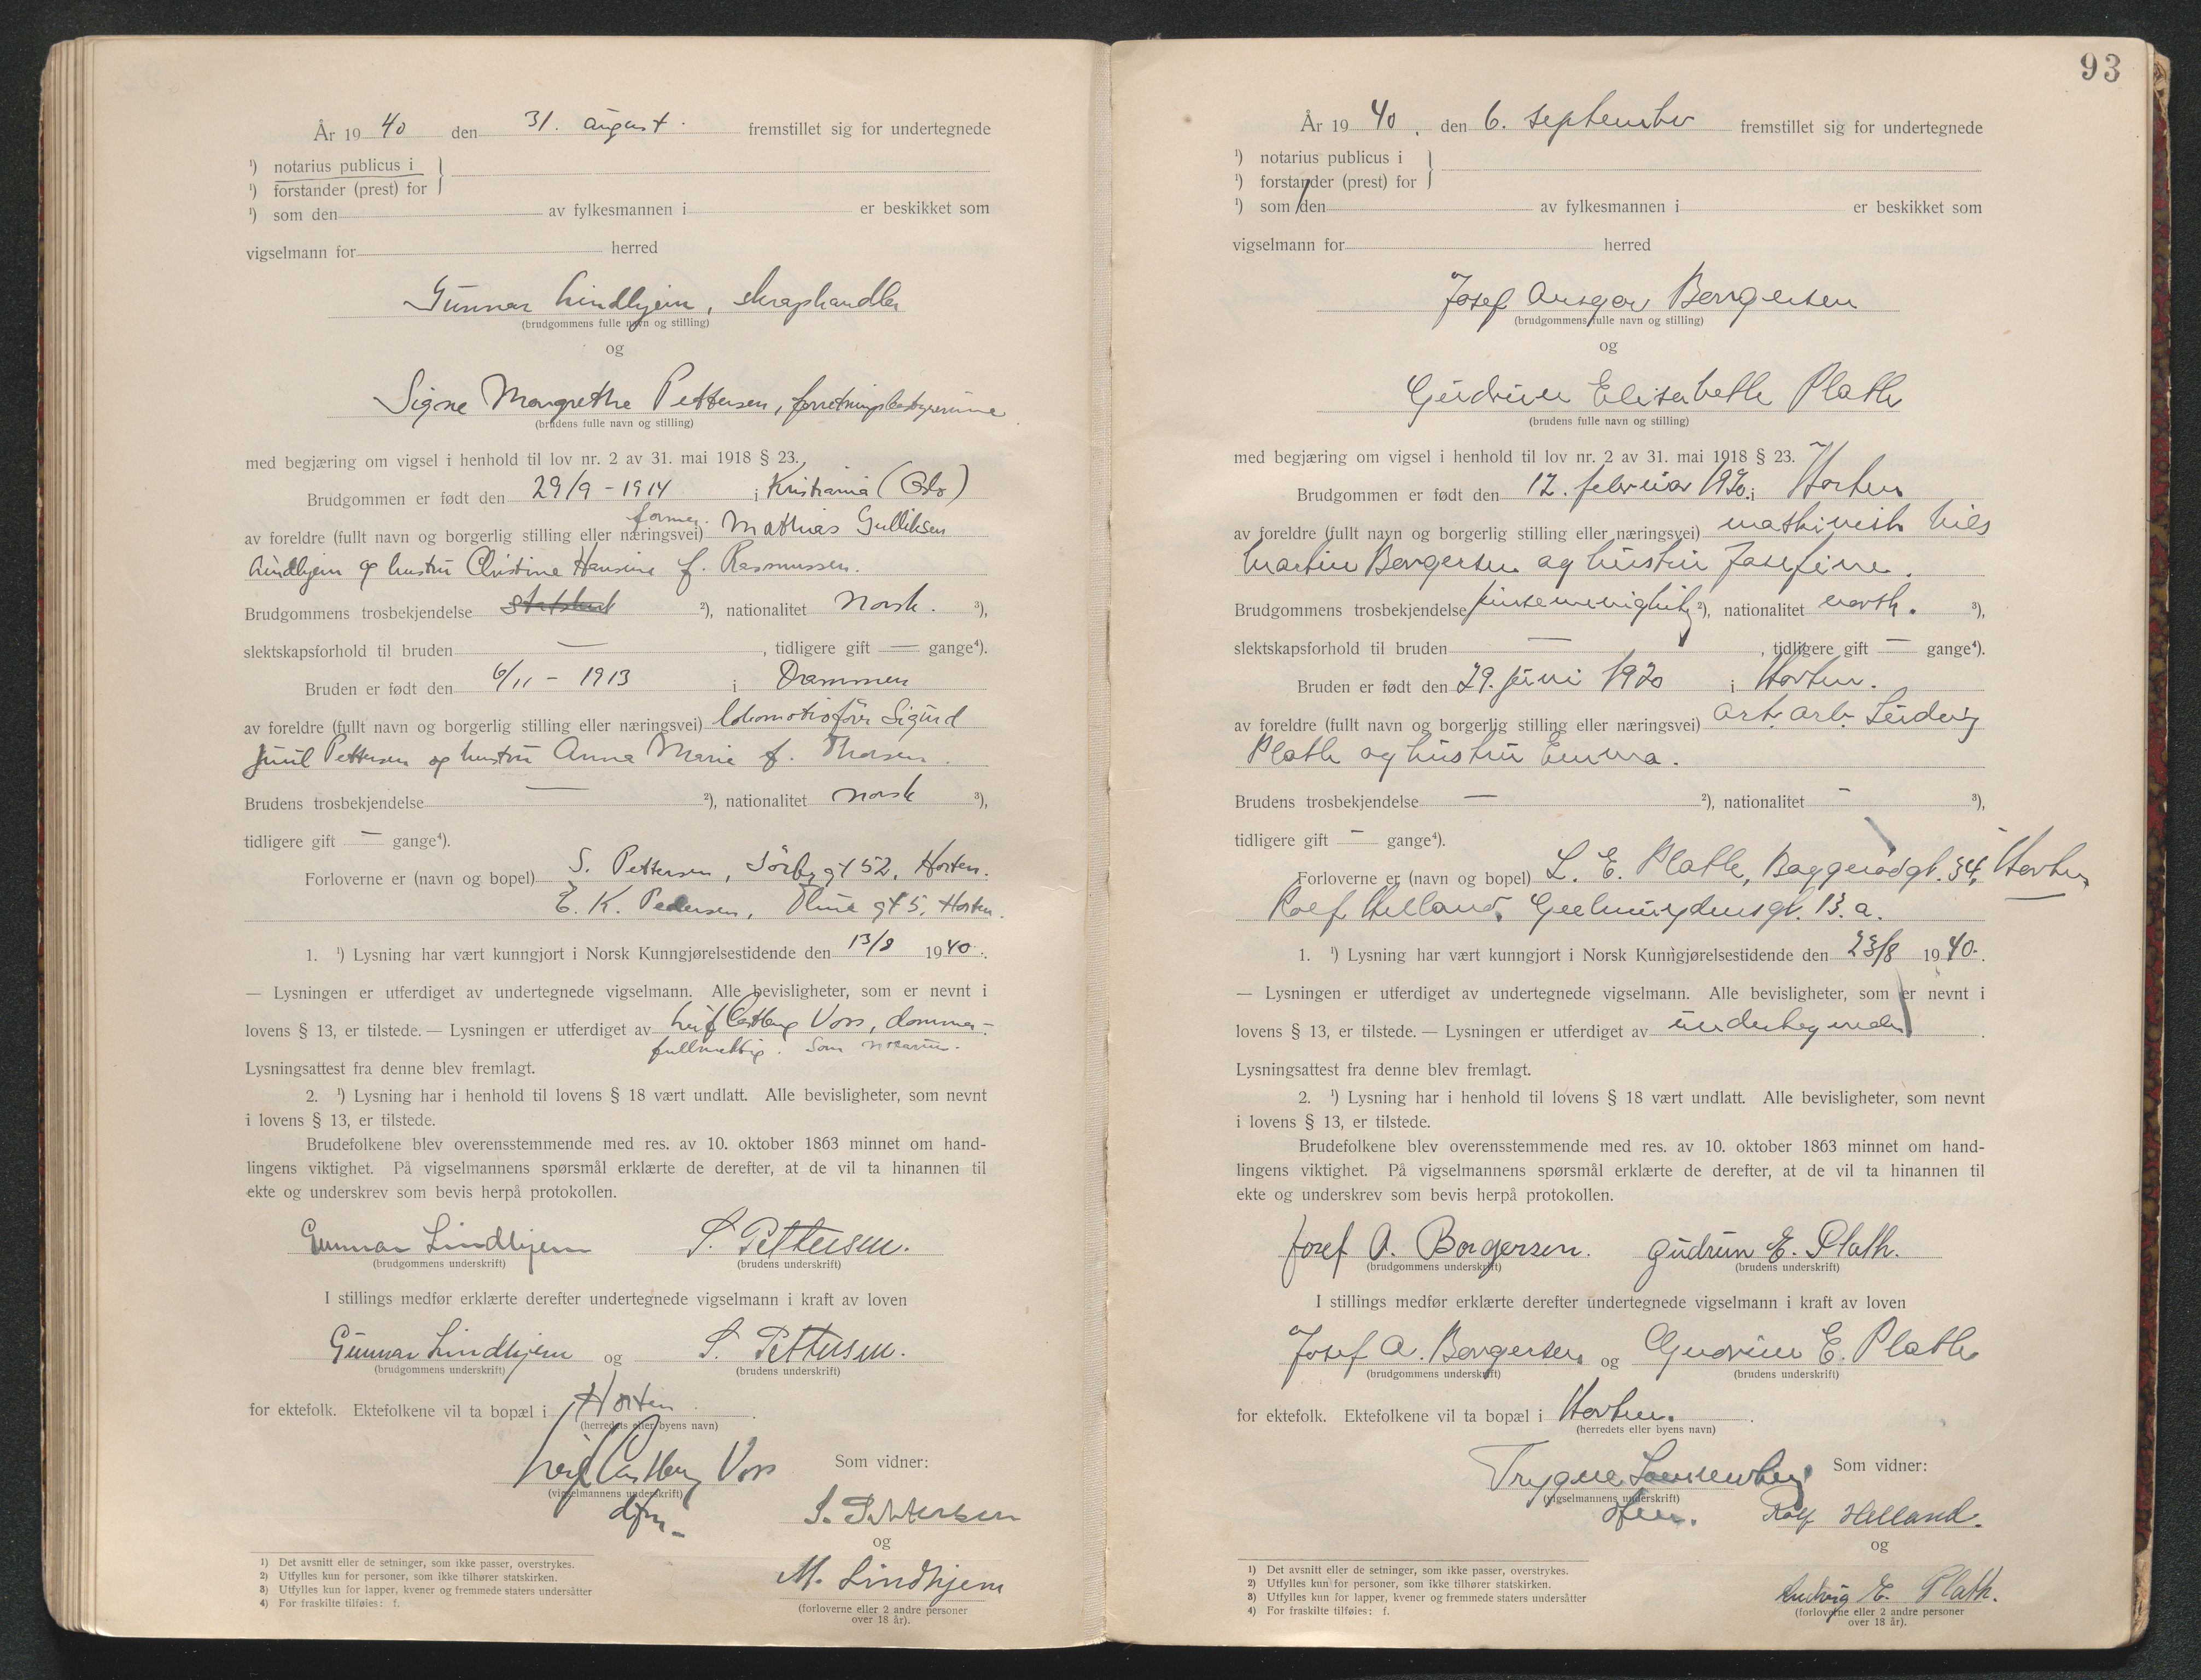 År 19 40 den 31. august. fremstillet sig for undertegnede
¹) notarius publicus i
¹) forstander (prest) for
¹) som den av fylkesmannen i er beskikket som
vigselmann for herred
Gunnar Lindhjem, skraphandler
(brudgommens fulle navn og stilling)
og
Signe Margrethe Pettersen, forretningsbestyrerinne
(brudens fulle navn og stilling)
med begjæring om vigsel i henhold til lov nr. 2 av 31. mai 1918 § 23.
Brudgommen er født den 29/9 - 1914 i Kristiania (Oslo)
former
av foreldre (fullt navn og borgerlig stilling eller næringsvei) Mathias Gulliksen
Lindhjem og hustru Christine Hansine f. Rasmussen.
Brudgommens trosbekjendelse statskirk ²), nationalitet norsk. ³),
slektskapsforhold til bruden — , tidligere gift — gange⁴).
Bruden er født den 6/11 - 1913 i Drammen
av foreldre (fullt navn og borgerlig stilling eller næringsvei) lokomotivfører Sigurd
Juul Pettersen og hustru Anna Marie f. Thorsen.
Brudens trosbekjendelse — ²), nationalitet norsk ³),
tidligere gift — gange⁴).
Forloverne er (navn og bopel) S. Pettersen, Sørbygt 52, Horten.
E. K. Pedersen, gt 5, Horten.
1. ¹) Lysning har vært kunngjort i Norsk Kunngjørelsestidende den 13/8 1940.
— Lysningen er utferdiget av undertegnede vigselmann. Alle bevisligheter, som er nevnt i
lovens § 13, er tilstede. — Lysningen er utferdiget av Leif Castberg Voss, dommer-
fullmektig. som notarius.
Lysningsattest fra denne blev fremlagt.
2. ¹) Lysning har i henhold til lovens § 18 vært undlatt. Alle bevisligheter, som nevnt
i lovens § 13, er tilstede.
Brudefolkene blev overensstemmende med res. av 10. oktober 1863 minnet om hand-
lingens viktighet. På vigselmannens spørsmål erklærte de derefter, at de vil ta hinannen til
ekte og underskrev som bevis herpå protokollen.
Gunnar Lindhjem S. Pettersen.
(brudgommens underskrift) (brudens underskrift)
I stillings medfør erklærte derefter undertegnede vigselmann i kraft av loven
Gunnar Lindhjem og S. Pettersen.
(brudgommens underskrift) (brudens underskrift)
for ektefolk. Ektefolkene vil ta bopæl i Horten.
(herredets eller byens navn)
Leif Castberg Voss Som vidner:
(vigselmannens underskrift)
dfm.
S. Pettersen
og
M. Lindhjem
(forloverne eller 2 andre personer
over 18 år).
1) Det avsnitt eller de setninger, som ikke passer, overstrykes.
2) Utfylles kun for personer, som ikke tilhører statskirken.
3) Utfylles kun for lapper, kvener og fremmede staters undersåtter
4) For fraskilte tilføies: f.
93
År 19 40. den 6. september fremstillet sig for undertegnede
¹) notarius publicus i
¹) forstander (prest) for
¹) som den av fylkesmannen i er beskikket som
vigselmann for herred
Josef Ansgar Borgersen
(brudgommens fulle navn og stilling)
og
Gudrun Elisabeth Plath
(brudens fulle navn og stilling)
med begjæring om vigsel i henhold til lov nr. 2 av 31. mai 1918 § 23.
Brudgommen er født den 12. februar 1920. i Horten
av foreldre (fullt navn og borgerlig stilling eller næringsvei) maskinist Nils
Martin Borgersen og hustru Josefine.
Brudgommens trosbekjendelse pinsemenighet ²), nationalitet norsk. ³),
slektskapsforhold til bruden — , tidligere gift — gange⁴).
Bruden er født den 29. juni 1920 i Horten.
av foreldre (fullt navn og borgerlig stilling eller næringsvei) arb. Ludvig
Plath og hustru Emma.
Brudens trosbekjendelse — ²), nationalitet — ³),
tidligere gift — gange⁴).
Forloverne er (navn og bopel) L. E. Plath, Baggerødgt. 34, Horten
Rolf Helland, Geelmuydensgt. 13. a.
1. ¹) Lysning har vært kunngjort i Norsk Kunngjørelsestidende den 23/8 1940.
— Lysningen er utferdiget av undertegnede vigselmann. Alle bevisligheter, som er nevnt i
lovens § 13, er tilstede. — Lysningen er utferdiget av undertegnede.
Lysningsattest fra denne blev fremlagt.
2. ¹) Lysning har i henhold til lovens § 18 vært undlatt. Alle bevisligheter, som nevnt
i lovens § 13, er tilstede.
Brudefolkene blev overensstemmende med res. av 10. oktober 1863 minnet om hand-
lingens viktighet. På vigselmannens spørsmål erklærte de derefter, at de vil ta hinannen til
ekte og underskrev som bevis herpå protokollen.
Josef A. Borgersen. Gudrun E. Plath.
(brudgommens underskrift) (brudens underskrift)
I stillings medfør erklærte derefter undertegnede vigselmann i kraft av loven
Josef A. Borgersen og Gudrun E. Plath
(brudgommens underskrift) (brudens underskrift)
for ektefolk. Ektefolkene vil ta bopæl i Horten.
(herredets eller byens navn)
Trygve Som vidner:
(vigselmannens underskrift)
Rolf Helland.
og
Ludvig E. Plath.
(forloverne eller 2 andre personer
over 18 år).
1) Det avsnitt eller de setninger, som ikke passer, overstrykes.
2) Utfylles kun for personer, som ikke tilhører statskirken.
3) Utfylles kun for lapper, kvener og fremmede staters undersåtter
4) For fraskilte tilføies: f.